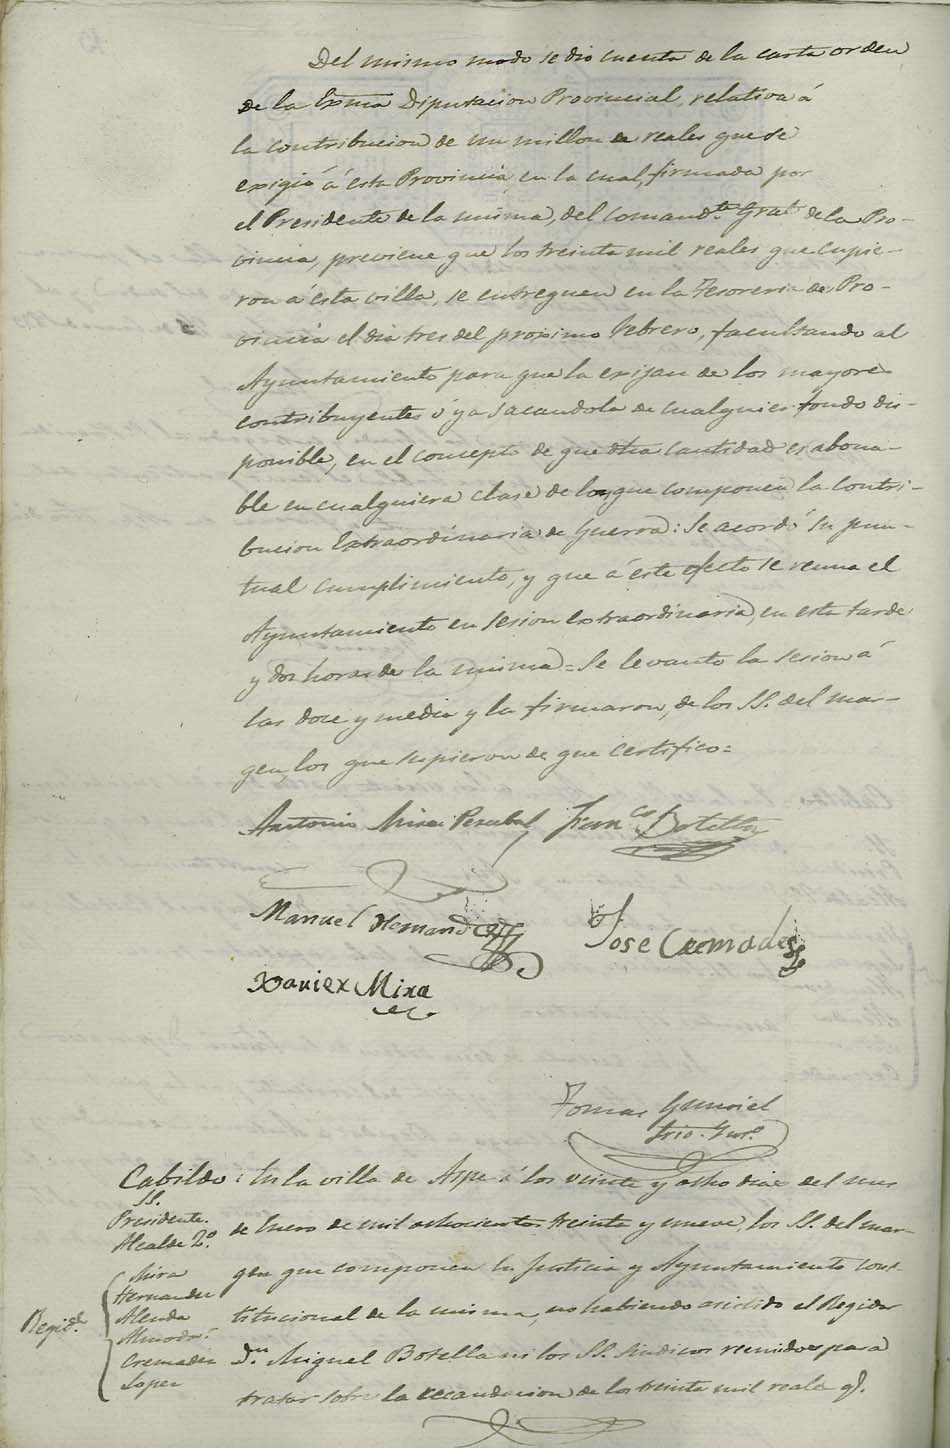 Del mismo modo se dio cuenta de la carta orden
de la Exma Diputacion Provincial, relativa á
la contribucion de un millon de reales que se
exigió á esta Provincia en la cual, firmada por
el Presidente de la misma, del Comandte Gral de la Pro-
vincia, previene que los treinta mil reales que cupie-
ron á esta villa, se entreguen en la Tesoreria de Pro-
vincia el dia tres del proximo Febrero, facultando al
Ayuntamiento para que la exijan de los mayores
contribuyentes ó ya sacandola de cualquier fondo dis-
ponible, en el concepto de que dha cantidad es abona-
ble en cualquiera clase de los que componen la Contri-
bucion Extraordinaria de Guerra: Se acordó su pun-
tual cumplimiento, y que á este efecto se reuna el
Ayuntamiento en sesion extraordinaria, en esta tarde
y dos horas de la misma = Se levanto la sesion á
las doce y media y la firmaron, de los SS. del mar-
gen, los que supieron de que certifico =
Antonio Mira Perabal Franco Botella
Manuel Hernandez
Jose Cremades
Xavier Mira
Tomas Gumiel
Srio. Intº.
Cabildo: En la villa de Aspe á los veinte y ocho dias del mes
SS.
Presidente.
Alcalde 2º.
de Enero de mil ochocientos treinta y nueve, los SS. del mar-
Regids.
Mira
Hernandez
Alenda
Almodor.
Cremades
Lopez
gen que componen la Justicia y Ayuntamiento cons-
titucional de la misma, no habiendo asistido el Regidor
Dn. Miguel Botella ni los SS. Sindicos reunidos para
tratar sobre la recaudacion de los treinta mil reales q.